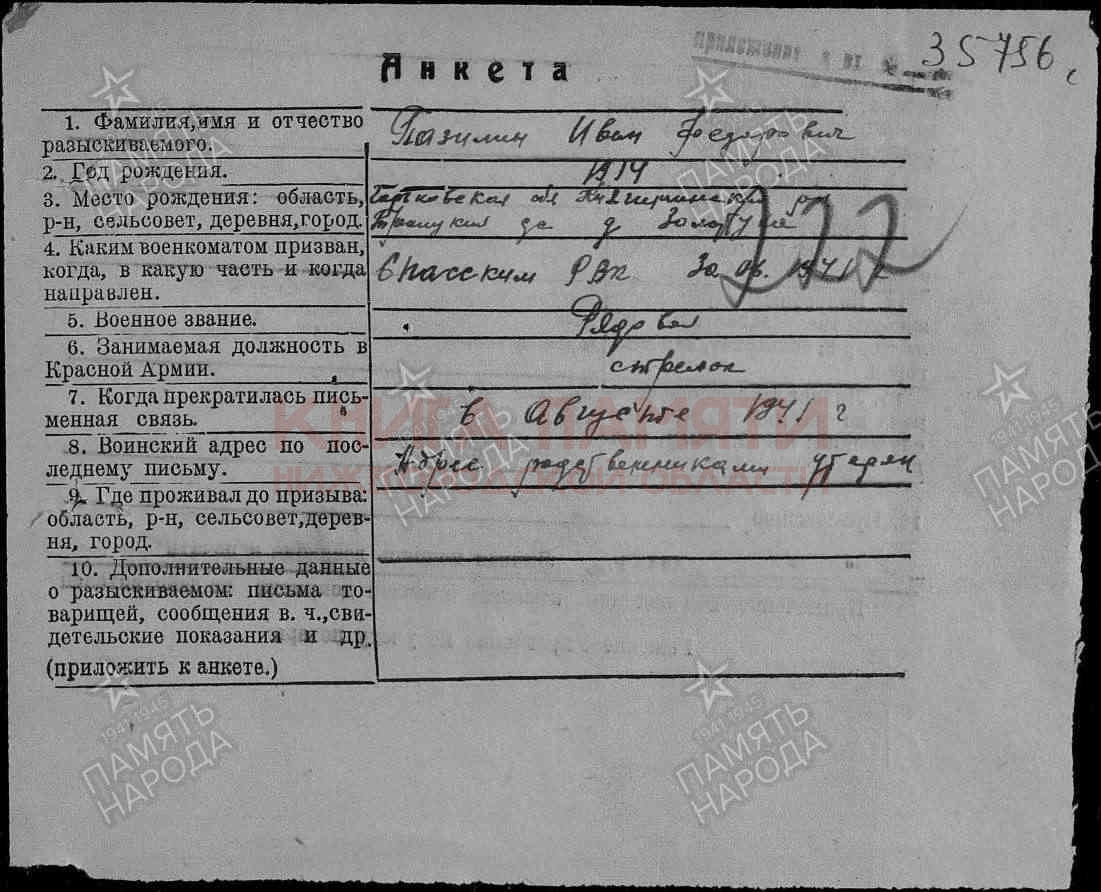 35756с
Анкета
1. Фамилия,имя и отчество
разыскиваемого.
Пазилин Иван Федорович
2. Год рождения.
1914
3. Место рождения: область,
р-н, сельсовет, деревня,город.
Горьковская обл Княгининский р-н
д
4. Каким военкоматом призван,
когда, в какую часть и когда
направлен.
Спасским РВК 30. 1941 г
222
5. Военное звание.
Рядовой
6. Занимаемая должность в
Красной Армии.
стрелок
7. Когда прекратилась пись-
менная связь.
в Августе 1941 г
8. Воинский адрес по пос-
леднему письму.
Адрес родственниками утерян
9. Где проживал до призыва:
область, р-н, сельсовет,дерев-
ня, город.
10. Дополнительные данные
о разыскиваемом: письма то-
варищей, сообщения в. ч.,сви-
детельские показания и др.
(приложить к анкете.)
КНИГА ПАМЯТИ
НИЖЕГОРОДСКОЙ ОБЛАСТИ
1941 1945
ПАМЯТЬ
НАРОДА